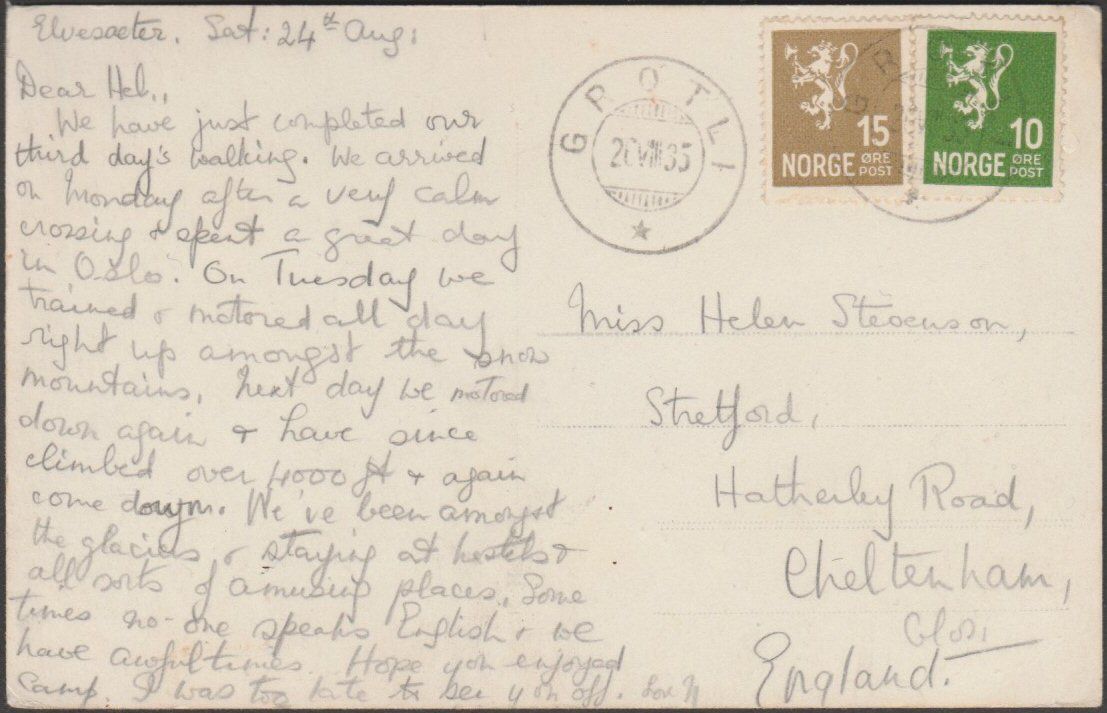 Elvesaeter. Sat: 24th Aug:
Dear Hel.,
We have just completed our
third day's walking. We arrived
on Monday after a very calm
crossing & spent a great day
in Oslo. On Tuesday we
trained & motored all day
right up amongst the snow
mountains. Next day we motored
down again & have since
climbed over 4000 ft & again
come down. We've been amongst
the glaciers & staying at hostels &
all sorts of amusing places. Some
times no-one speaks English & we
have awful times. Hope you enjoyed
camp. I was too late to see you off. Love
GROTLI
VIII 35
15
NORGE ØRE POST
10
NORGE ØRE POST
Miss Helen Stevenson,
Stretford,
Hatherley Road,
Cheltenham,
Glos,
England.